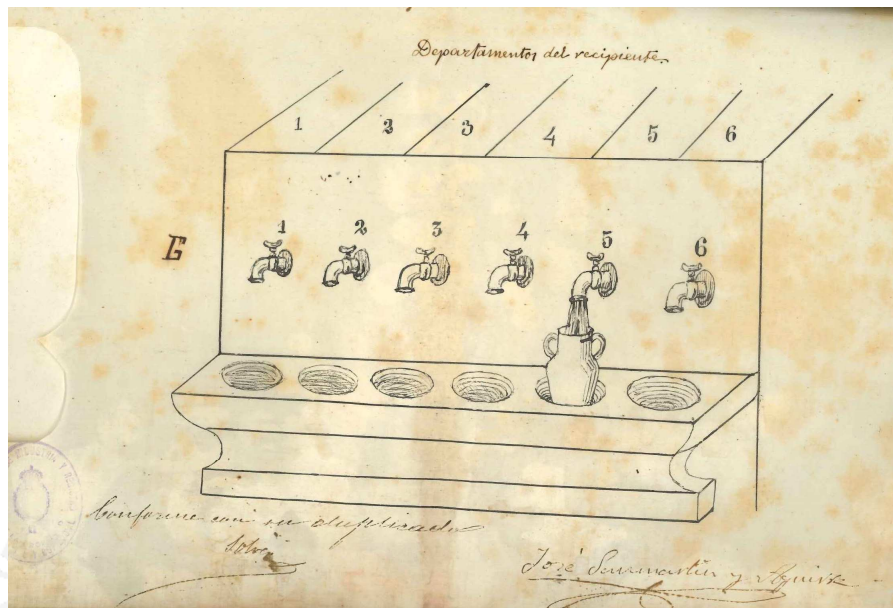 Departamentos del recipiente.
1 2 3 4 5 6
1 2 3 4 5 6
Conforme con su duplicado
José Sanmartín y